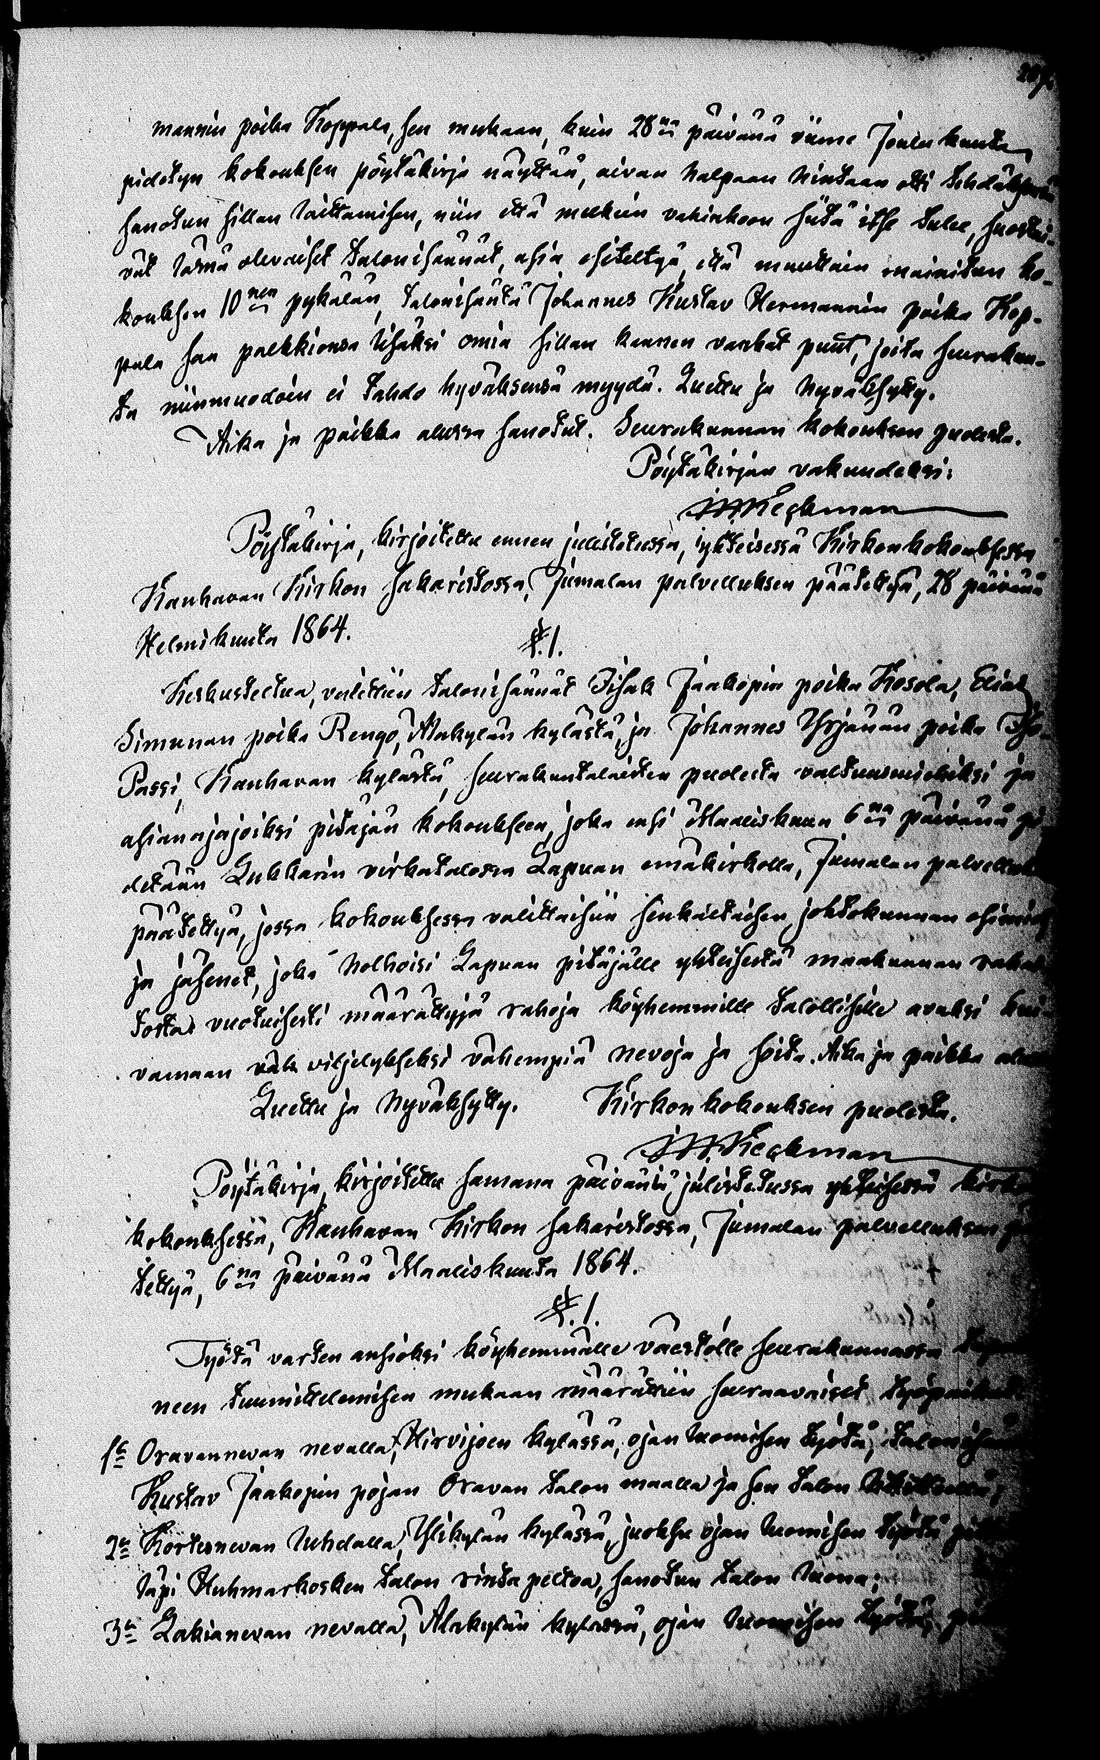 mannin poika Koppala, sen mukaan, kuin 28na päivänä viime Joulukuuta
pidetyn kokouksen pöytäkirja näyttää, aivan halpaan hintaan otti tehdäksensä
sanotun sillan laittamisen, niin että melkein vahinkoon siitä itse tulee, suostui-
vat läsnä olevaiset talonisännät, asia esiteltyä, että muuttain mainitun ko-
kouksen 10nen pykälän, talonisäntä Johannes Kustav Hermannin poika Kop-
pala saa palkkionsa lisäksi omia sillan kannen vanhat puut, joita seurakun-
ta niinmuodoin ei tahdo hyväksensä myydä. Luettu ja hyväksytty.
Aika ja paikka alussa sanotut. Seurakunnan kokouksen puolesta.
Pöytäkirjan vakuudeksi:
Keckman
Pöytäkirja, kirjoitettu ennen julistetussa, yhteisessä Kirkonkokouksessa
Kauhavan Kirkon sakaristossa, Jumalan palvelluksen päätettyä, 28 päivänä
Helmikuuta 1864.
§.1.
Keskusteltua, valittiin talonisännät Iisak Jaakopin poika Kosola, Elias
Simunan poika Rengo, Alakylän kylästä, ja Johannes Yrjänän poika
Passi, Kauhavan kylästä, seurakuntalaisten puolesta valtuusmiehiksi ja
asianajajoiksi pitäjän kokoukseen, joka ensi Maaliskuun 6na päivänä pi-
detään Lukkarin virkatalossa Lapuan emäkirkolla, Jumalan palvelluksen
päätettyä, jossa kokouksessa valittaisiin senkaltaisen johtokunnan esimies
ja jäsenet, joka holhoisi Lapuan pitäjälle yhteisestä maakunnan rahas-
tosta vuotuisesti määrättyjä rahoja köyhemmille talollisille avuksi kui-
vamaan viljelykseksi vähempiä nevoja ja soita. Aika ja paikka
Luettu ja hyväksytty. Kirkonkokouksen puolesta.
Keckman
Pöytäkirja, kirjoitettu samana päivänä, julistetussa yhteisessä kirkon
kokouksessa, Kauhavan Kirkon sakaristossa, Jumalan palvelluksen pää-
tettyä, 6na päivänä Maaliskuuta 1864.
§.1.
Työtä varten ansioksi köyhemmälle väestölle seurakunnassa
neen tuumittelemisen mukaan määrättiin seuraavaiset työpaikat
1ksi Oravannevan nevalla, Hirvijoen kylässä, ojan luomisen työtä, talonisännän
Kustav Jaakopin pojan Oravan talon maalla ja sen talon
2ksi Kortesnevan luhdalla, Ylikylän kylässä, juoksu ojan luomisen työtä
läpi Huhmarkosken talon rintapeltoa, sanotun talon luona;
3ksi Lakianevan nevalla, Alakylän kylässä, ojan luomisen työtä,